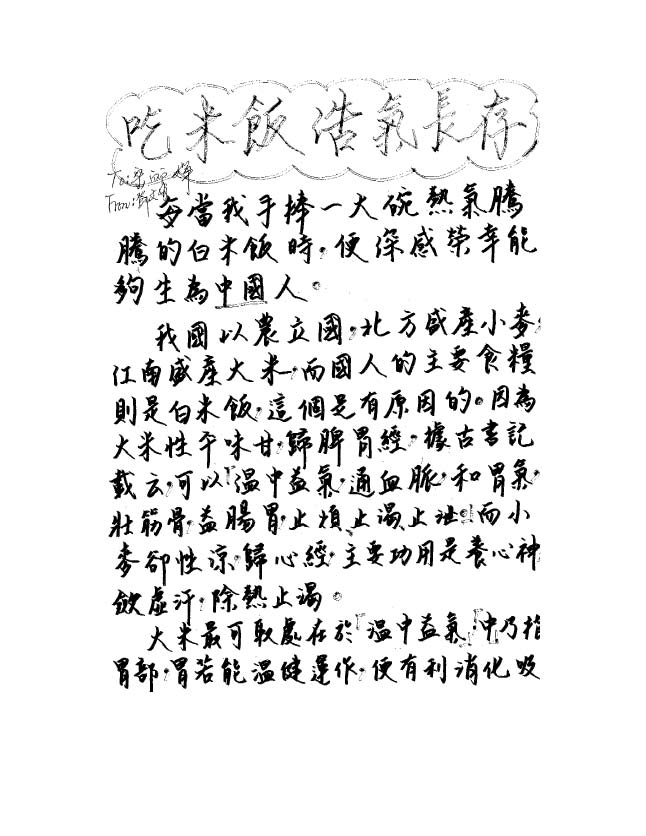 吃米飯浩氣長存
To:梁
From:
每當我手捧一大碗熱氣騰
騰的白米飯時,便深感榮幸能
夠生為中國人。
我國以農立國,北方盛產小麥,
江南盛產大米,而國人的主要食糧
則是白米飯,這個是有原因的。因為
大米性平味甘,歸脾胃經,據古書記
載云,可以「溫中益氣,通血脈,和胃氣,
壯筋骨,益腸胃,止煩,止渴,止泄」。而小
麥卻性涼,歸心經,主要功用是養心神
斂虛汗,除熱止渴。
大米最可取處在於「溫中益氣」,中乃指
胃部,胃若能溫健運作,便有利消化吸